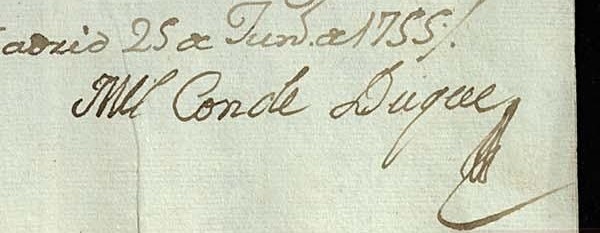 adrid 25 de Jun.º de 1755./.
Mll Conde Duque